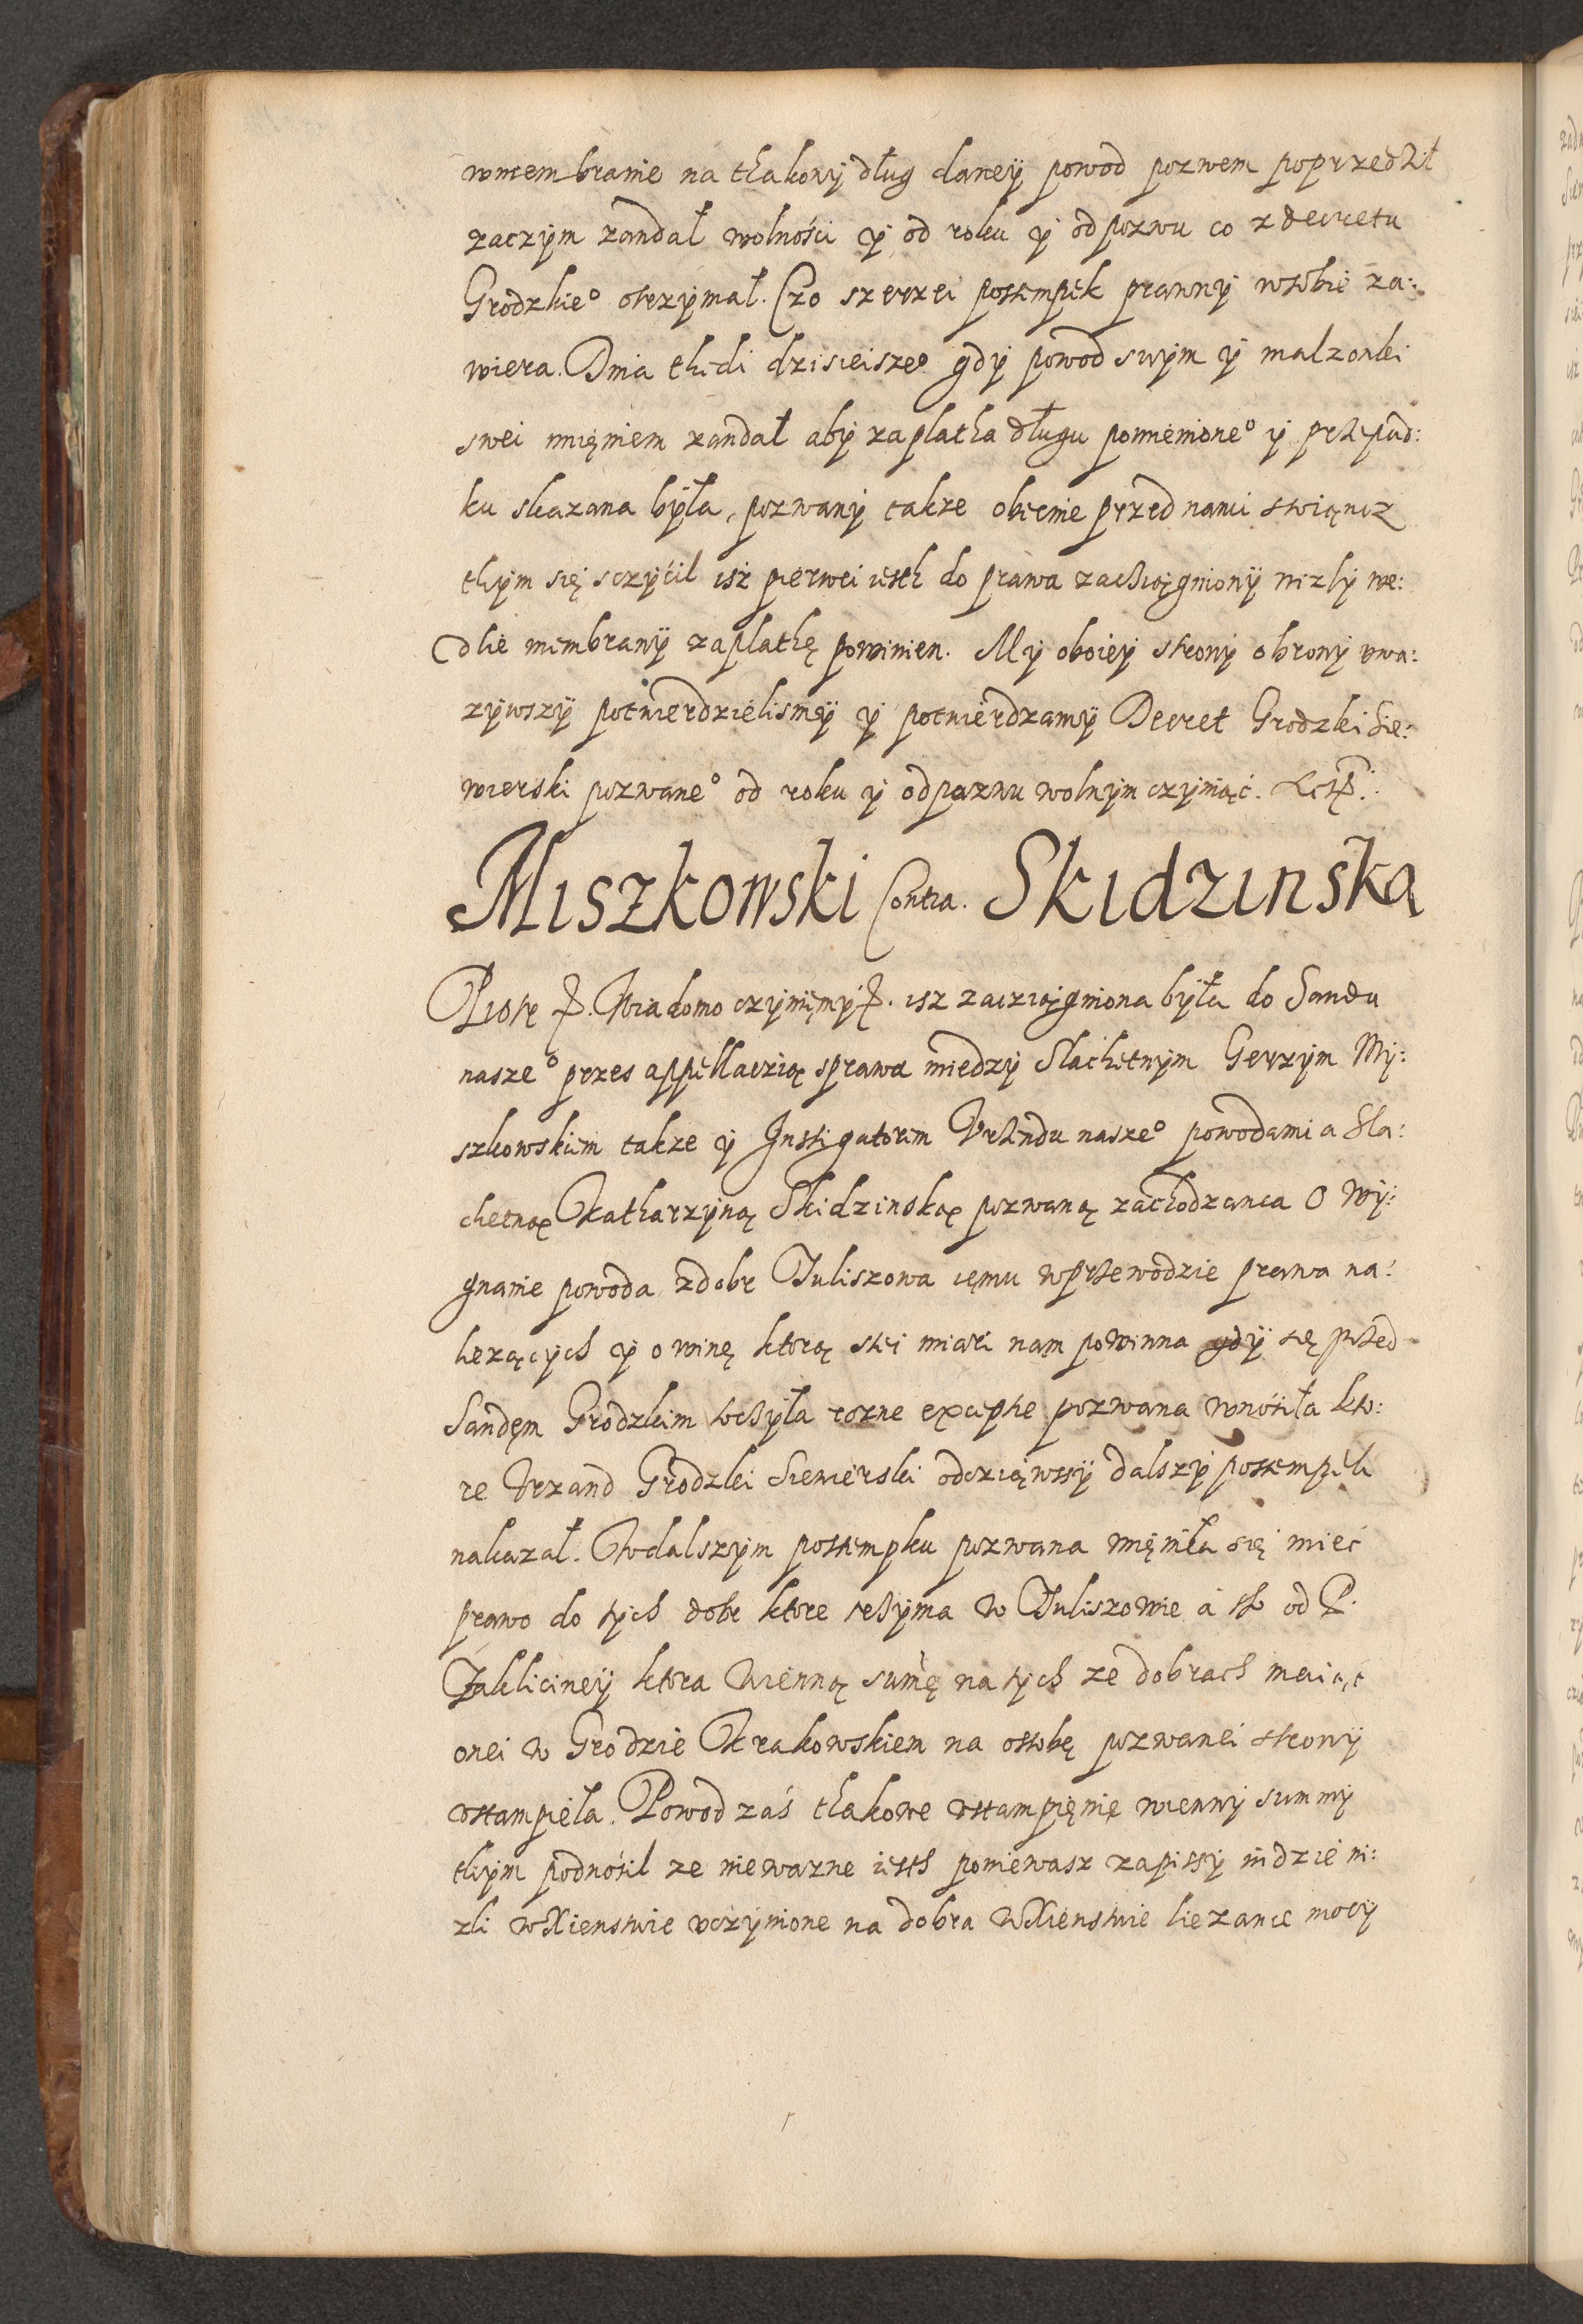 wmembranie na thakowy dług daney powod pozwem poprzedził
zaczym żandał wolności y od roku y od pozwu co z decretu
Grodzkie° otrzymał. Czo szerzei postempek prawny wsobie za:
wiera. Dnia thedi dzisieisze° gdy powod swym y malzonki
swei imięniem żandał aby zaplatha długu pomienione° y przepad:
ku skazana była, pozwany takze obecnie przed nami stoiąncz
thym się sczyćił isz pierwei iesth do prawa zachiągniony nizly we:
dlie membrany zaplathę powinien. My oboiey strony obrony uwa:
zywszy potwierdzielismy y potwierdzamy Decret Grodzki Sie:
wierski pozwane° od roku y od pozwu wolnym czyniąć.
Miszkowski Contra. Skidzinska
Piotr Wiadomo czynięmy isz zacziągniona była do Sandu
nasze° przes appellaczią sprawa miedzy Slachetnym Gerzym My:
szkowskim takze y Instigatorem Urzendu nasze° powodami a Sla:
chetną Katharzyną Skidzinską pozwaną zachodzanca O Wy:
gnanie powoda z dobr Tuliszowa iemu wprzewodzie prawa na:
lezących y o winę ktorą stei miari nam powinna gdy się przed
Sandęm Grodzkim toczyła rozne exceptie pozwana wnosiła kto:
re Urzand Grodzki Siewierski odcziąwssy dalszy postempek
nakazał. Wdalszym postempku pozwana mięniła się mieć
prawo do tych dobr ktore trzyma w Tuliszowie a to od P.
Zakliciney ktora Wienną sumę na tych ze dobrach maiąc
onei w Grodzie Krakowskiem na ossobę pozwanei strony
ustampieła. Powod zaś thakowe ustampięnie wienny summy
thym podnosił ze niewazne iesth poniewasz zapissy nidzie ni:
zli wXienstwie uczynione na dobra wXienstwie liezance mocy